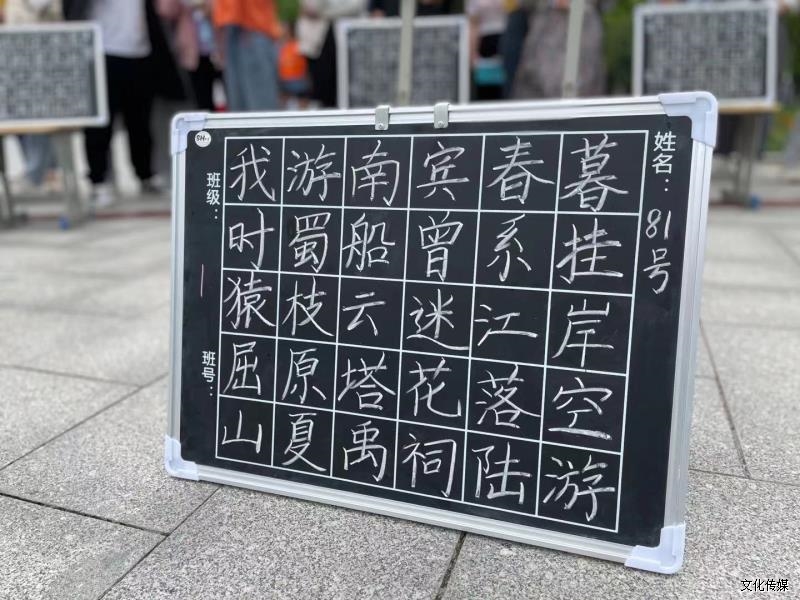 我游南宾春暮
时蜀船曾系挂
猿枝云迷江岸
屈原塔花落空
山夏禹祠陆游
姓名：81号
班级：
班号：
文化传媒